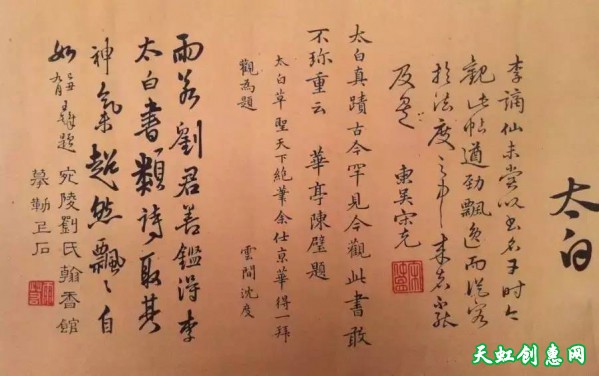 太白
李謫仙未嘗以書名于时今
觀此帖遒勁飄逸而從容
於法度之中來者不能
及
東吳宋克
太白真蹟古今罕見今觀此書敢
不珍重云 華亭陳璧題
太白草聖天下絕筆余仕京華得一拜
觀為題
雲間沈度
雨若劉君善鑑得李
太白書類詩取其
神氣超然飄々自
如
九月
題
宛陵劉氏翰香館
摹勒上石
天虹创惠网